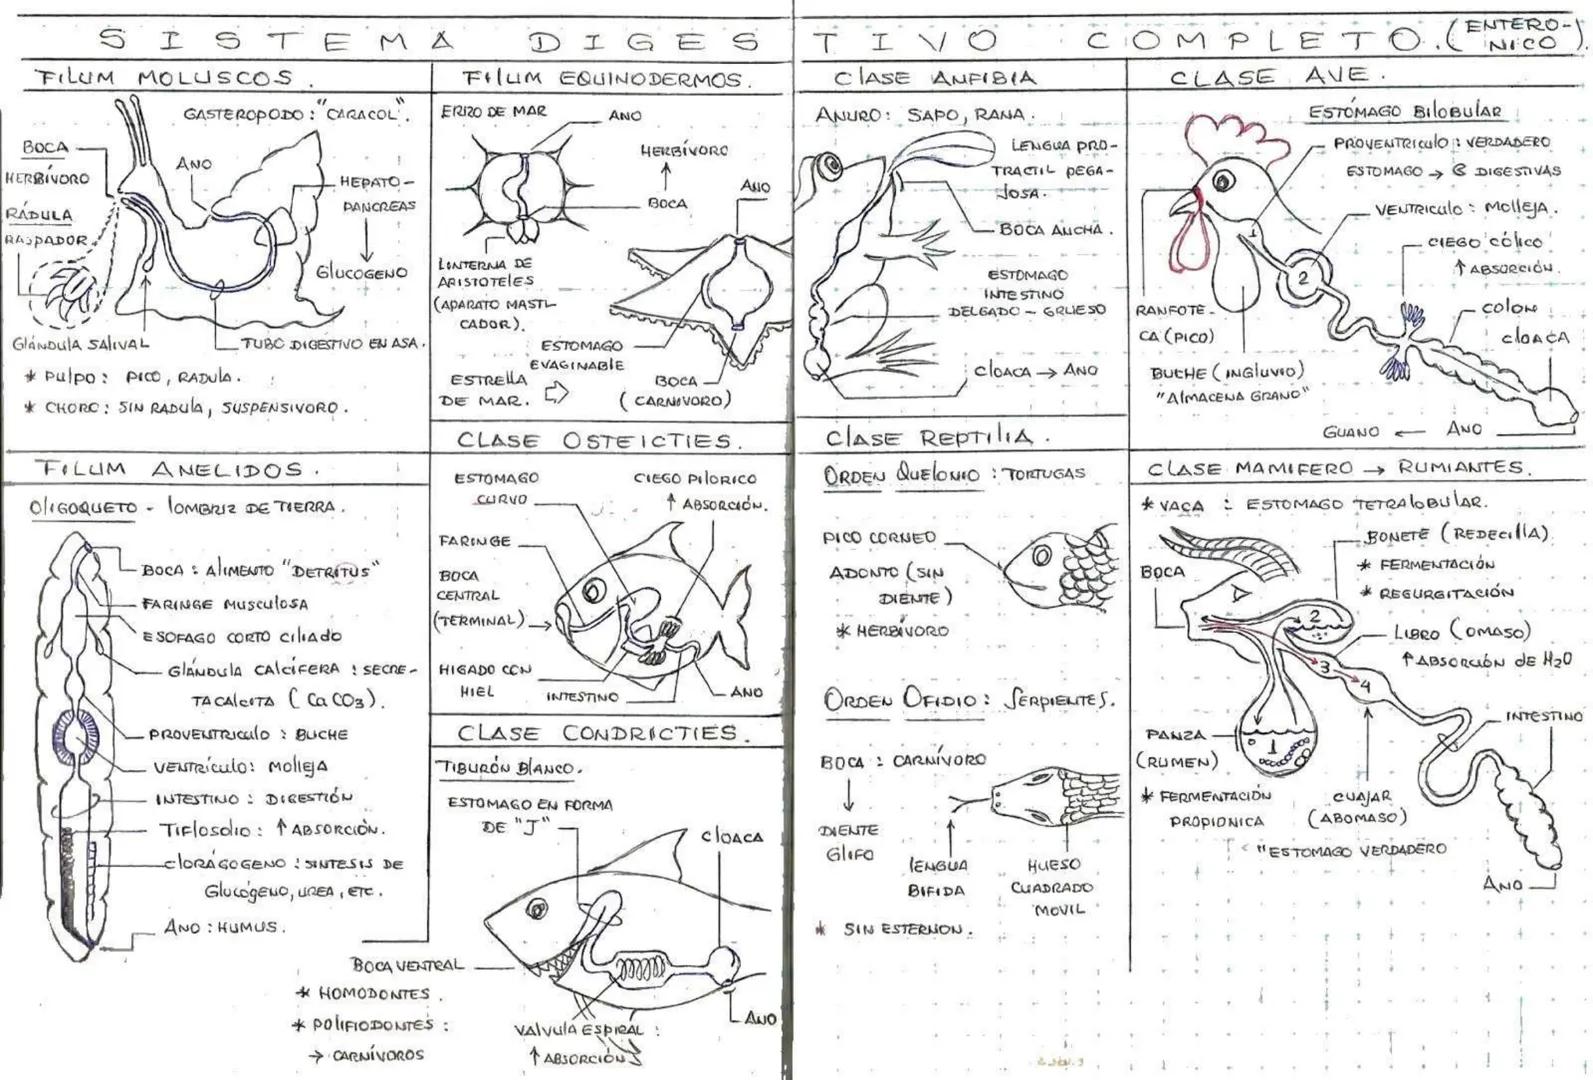 SISTEMA DIGESTIVO COMPLETO. (ENTERO-
NICO).
FILUM MOLUSCOS.
GASTEROPODO: "CARACOL".
BOCA
HERBÍVORO
RÁDULA
RASPADOR
ANO
HEPATO-
PANCREAS
GLUCOGENO
GLÁNDULA SALIVAL
TUBO DIGESTIVO EN ASA.
* PULPO: PICO, RADULA.
* CHORO: SIN RADULA, SUSPENSIVORO.
FILUM ANELIDOS.
OLIGOQUETO - LOMBRIZ DE TIERRA.
BOCA: ALIMENTO "DETRITUS"
FARINGE MUSCULOSA
ESOFAGO CORTO CILIADO
GLÁNDULA CALCÍFERA: SECRE-
TA CALCITA (CaCO3).
PROVENTRICULO: BUCHE
VENTRÍCULO: MOLLEJA
INTESTINO: DIGESTIÓN
TIFLOSOLIO: ↑ ABSORCIÓN.
CLORAGOGENO: SINTESIS DE
GLUCÓGENO, UREA, ETC.
ANO: HUMUS.
FILUM EQUINODERMOS.
ERIZO DE MAR
ANO
HERBÍVORO
BOCA
LINTERNA DE
ARISTOTELES
(APARATO MASTI-
CADOR).
ANO
ESTOMAGO
EVAGINABLE
ESTRELLA
DE MAR.
BOCA
(CARNIVORO)
CLASE OSTEICTIES.
ESTOMAGO
CURVO
CIEGO PILORICO
↑ ABSORCIÓN.
FARINGE
BOCA
CENTRAL
(TERMINAL)
HIGADO CON
HIEL
INTESTINO
ANO
CLASE CONDRICTIES.
TIBURÓN BLANCO.
ESTOMAGO EN FORMA
DE "J"
CLOACA
BOCA VENTRAL
* HOMODONTES.
* POLIFIODONTES:
→ CARNÍVOROS
VALVULA ESPIRAL:
↑ ABSORCIÓN
ANO
CLASE ANFIBIA
ANURO: SAPO, RANA.
LENGUA PRO-
TRACTIL PEGA-
JOSA.
BOCA ANCHA.
ESTOMAGO
INTESTINO
DELGADO - GRUESO
CLOACA → ANO
CLASE REPTILIA.
ORDEN QUELONIO: TORTUGAS
PICO CORNEO
ADONTO (SIN
DIENTE)
* HERBÍVORO
ORDEN OFIDIO: SERPIENTES.
BOCA: CARNÍVORO
DIENTE
GLIFO
LENGUA
BIFIDA
HUESO
CUADRADO
MOVIL
* SIN ESTERNON.
CLASE AVE.
ESTÓMAGO BILOBULAR
PROVENTRICULO: VERDADERO
ESTOMAGO → € DIGESTIVAS
VENTRICULO: MOLLEJA.
CIEGO CÓLICO
↑ ABSORCIÓN.
COLON
CLOACA
1
2
RANFOTE-
CA (PICO)
BUCHE (INGLUVIO)
"ALMACENA GRANO"
GUANO ← ANO
CLASE MAMIFERO → RUMIANTES.
* VACA: ESTOMAGO TETRALOBULAR.
BONETE (REDECILLA)
* FERMENTACIÓN
* REGURGITACIÓN
BOCA
LIBRO (OMASO)
↑ ABSORCIÓN DE H2O
2
3
4
1
INTESTINO
PANZA
(RUMEN)
* FERMENTACIÓN
PROPIONICA
CUAJAR
(ABOMASO)
"ESTOMAGO VERDADERO
ANO